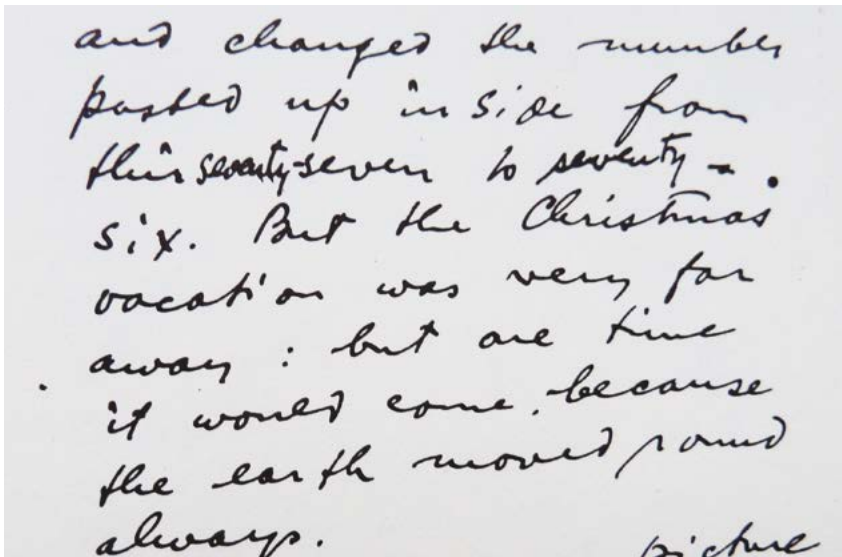 and changed the number
pasted up inside from
seventy-seven to seventy-
six. But the Christmas
vacation was very far
away: but one time
it would come because
the earth moved round
always.
picture